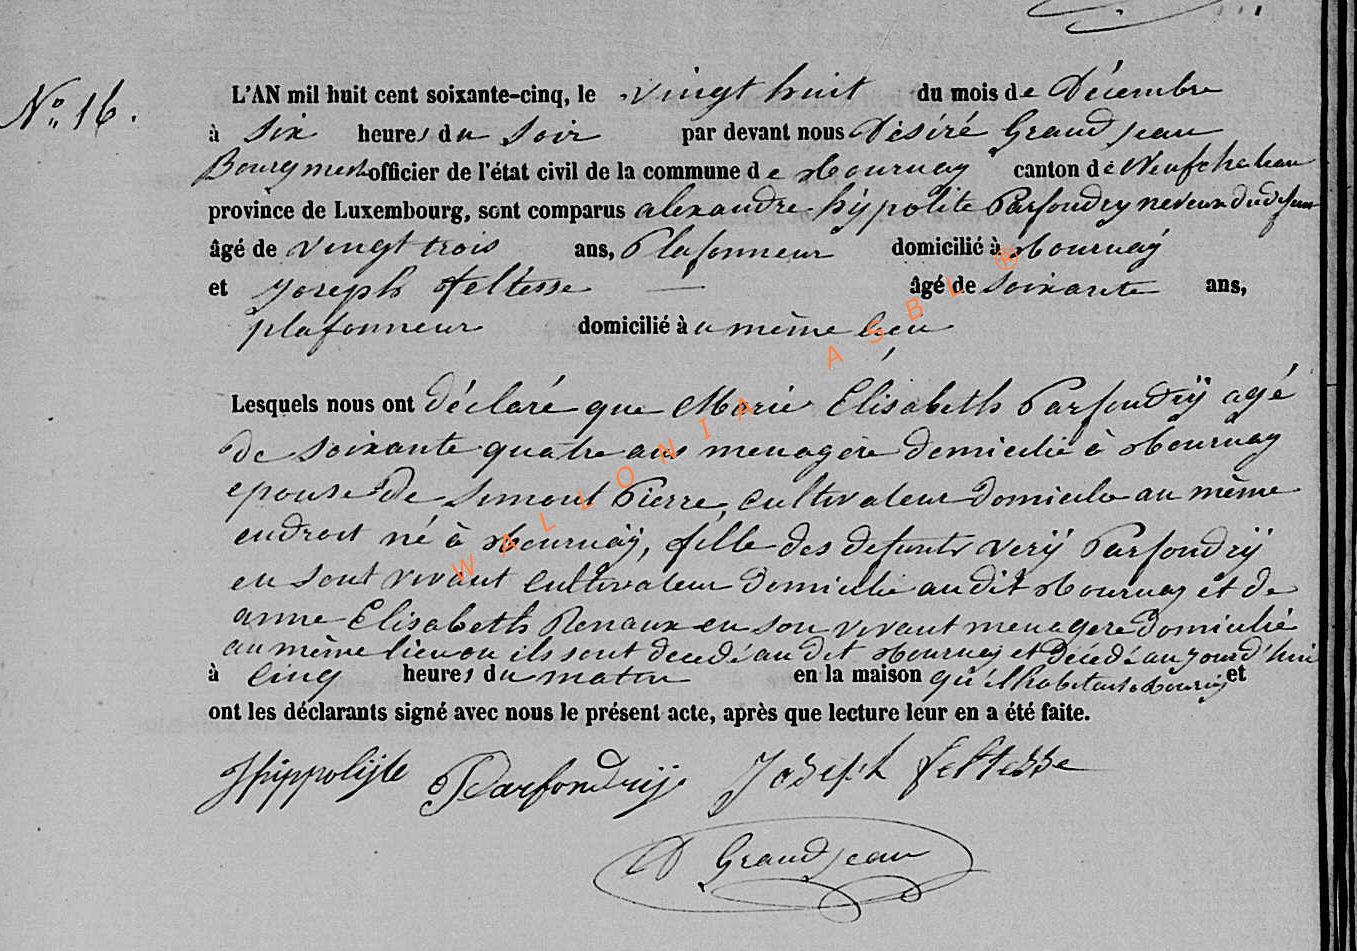 N° 16.
L'AN mil huit cent soixante-cinq, le vingt huit du mois de Décembre
à six heures du soir par devant nous Désiré Grandjean
Bourgmest officier de l'état civil de la commune de Tournay canton de Neufchateau
province de Luxembourg, sont comparus alexandre hÿppolite Parfondry neveux du defunt
âgé de vingt trois ans, Plafonneur domicilié à Tournaÿ
et Joseph feltesse âgé de soixante ans,
plafonneur domicilié à u même lieu
Lesquels nous ont déclaré que Marie Élisabeth Parfondrÿ agé
de soixante quatre ans menagère domicilié à Tournay
epouse de Simont Pierre, cultivateur domicilie au même
endroit né à Tournaÿ, fille des defunts Verÿ Parfondrÿ
en sont vivant cultivateur domicilié au dit Tournay et de
anne Elisabeth Renaux en son vivant menagere domicilié
au même lieu ou ils sont decedé au dit Tournay et décédé au jourd'hui
à Cinq heures du matin en la maison qu'il habitait a Tournay et
ont les déclarants signé avec nous le présent acte, après que lecture leur en a été faite.
Hippolijte Parfondrijs Joseph feltesse
D Grandjean
WALLONIA ASBL ®